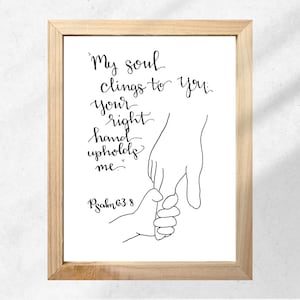 "My soul
clings to You,
your
right
hand
upholds
me"
Psalm 63:8